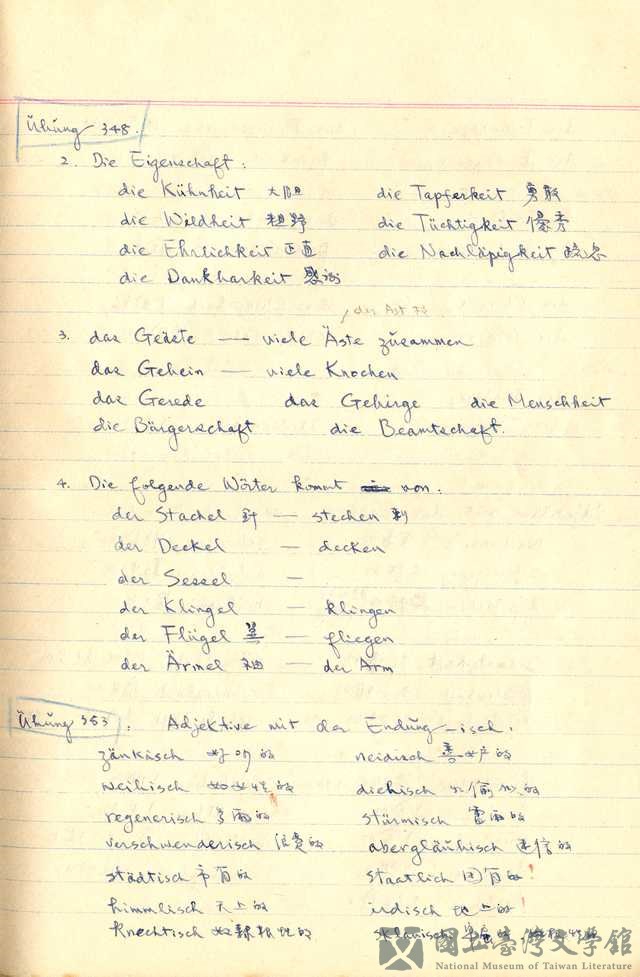 Übung 348.
2. Die Eigenschaft:
die Kühnheit 大胆 die Tapferkeit 勇敢
die Wildheit 粗野 die Tüchtigkeit 優秀
die Ehrlichkeit 正直 die Nachläpigkeit
die Dankbarkeit 感謝
der Ast 枝
3. das Geäste — viele Äste zusammen
das Gebein — viele Knochen
das Gerede das Gebirge die Menschheit
die Bürgerschaft die Beamtschaft.
4. Die folgende Wörter kommt von:
der Stachel 針 — stechen 刺
der Deckel — decken
der Sessel —
der Klingel — klingen
der Flügel 翼 — fliegen
der Ärmel 袖 — der Arm
Übung 353: Adjektive mit der Endung -isch.
zänkisch 好吵的 neidisch 善妒的
weibisch 女性的 diebisch 偷的
regenerisch 多雨的 stürmisch 雷雨的
verschwenderisch 浪費的 abergläubisch 迷信的
städtisch 市有的 staatlich 国有的
himmlisch 天上的 irdisch 地上的
knechtisch 奴隸根性的 sklavisch
國立臺灣文學館
National Museum of Taiwan Literature